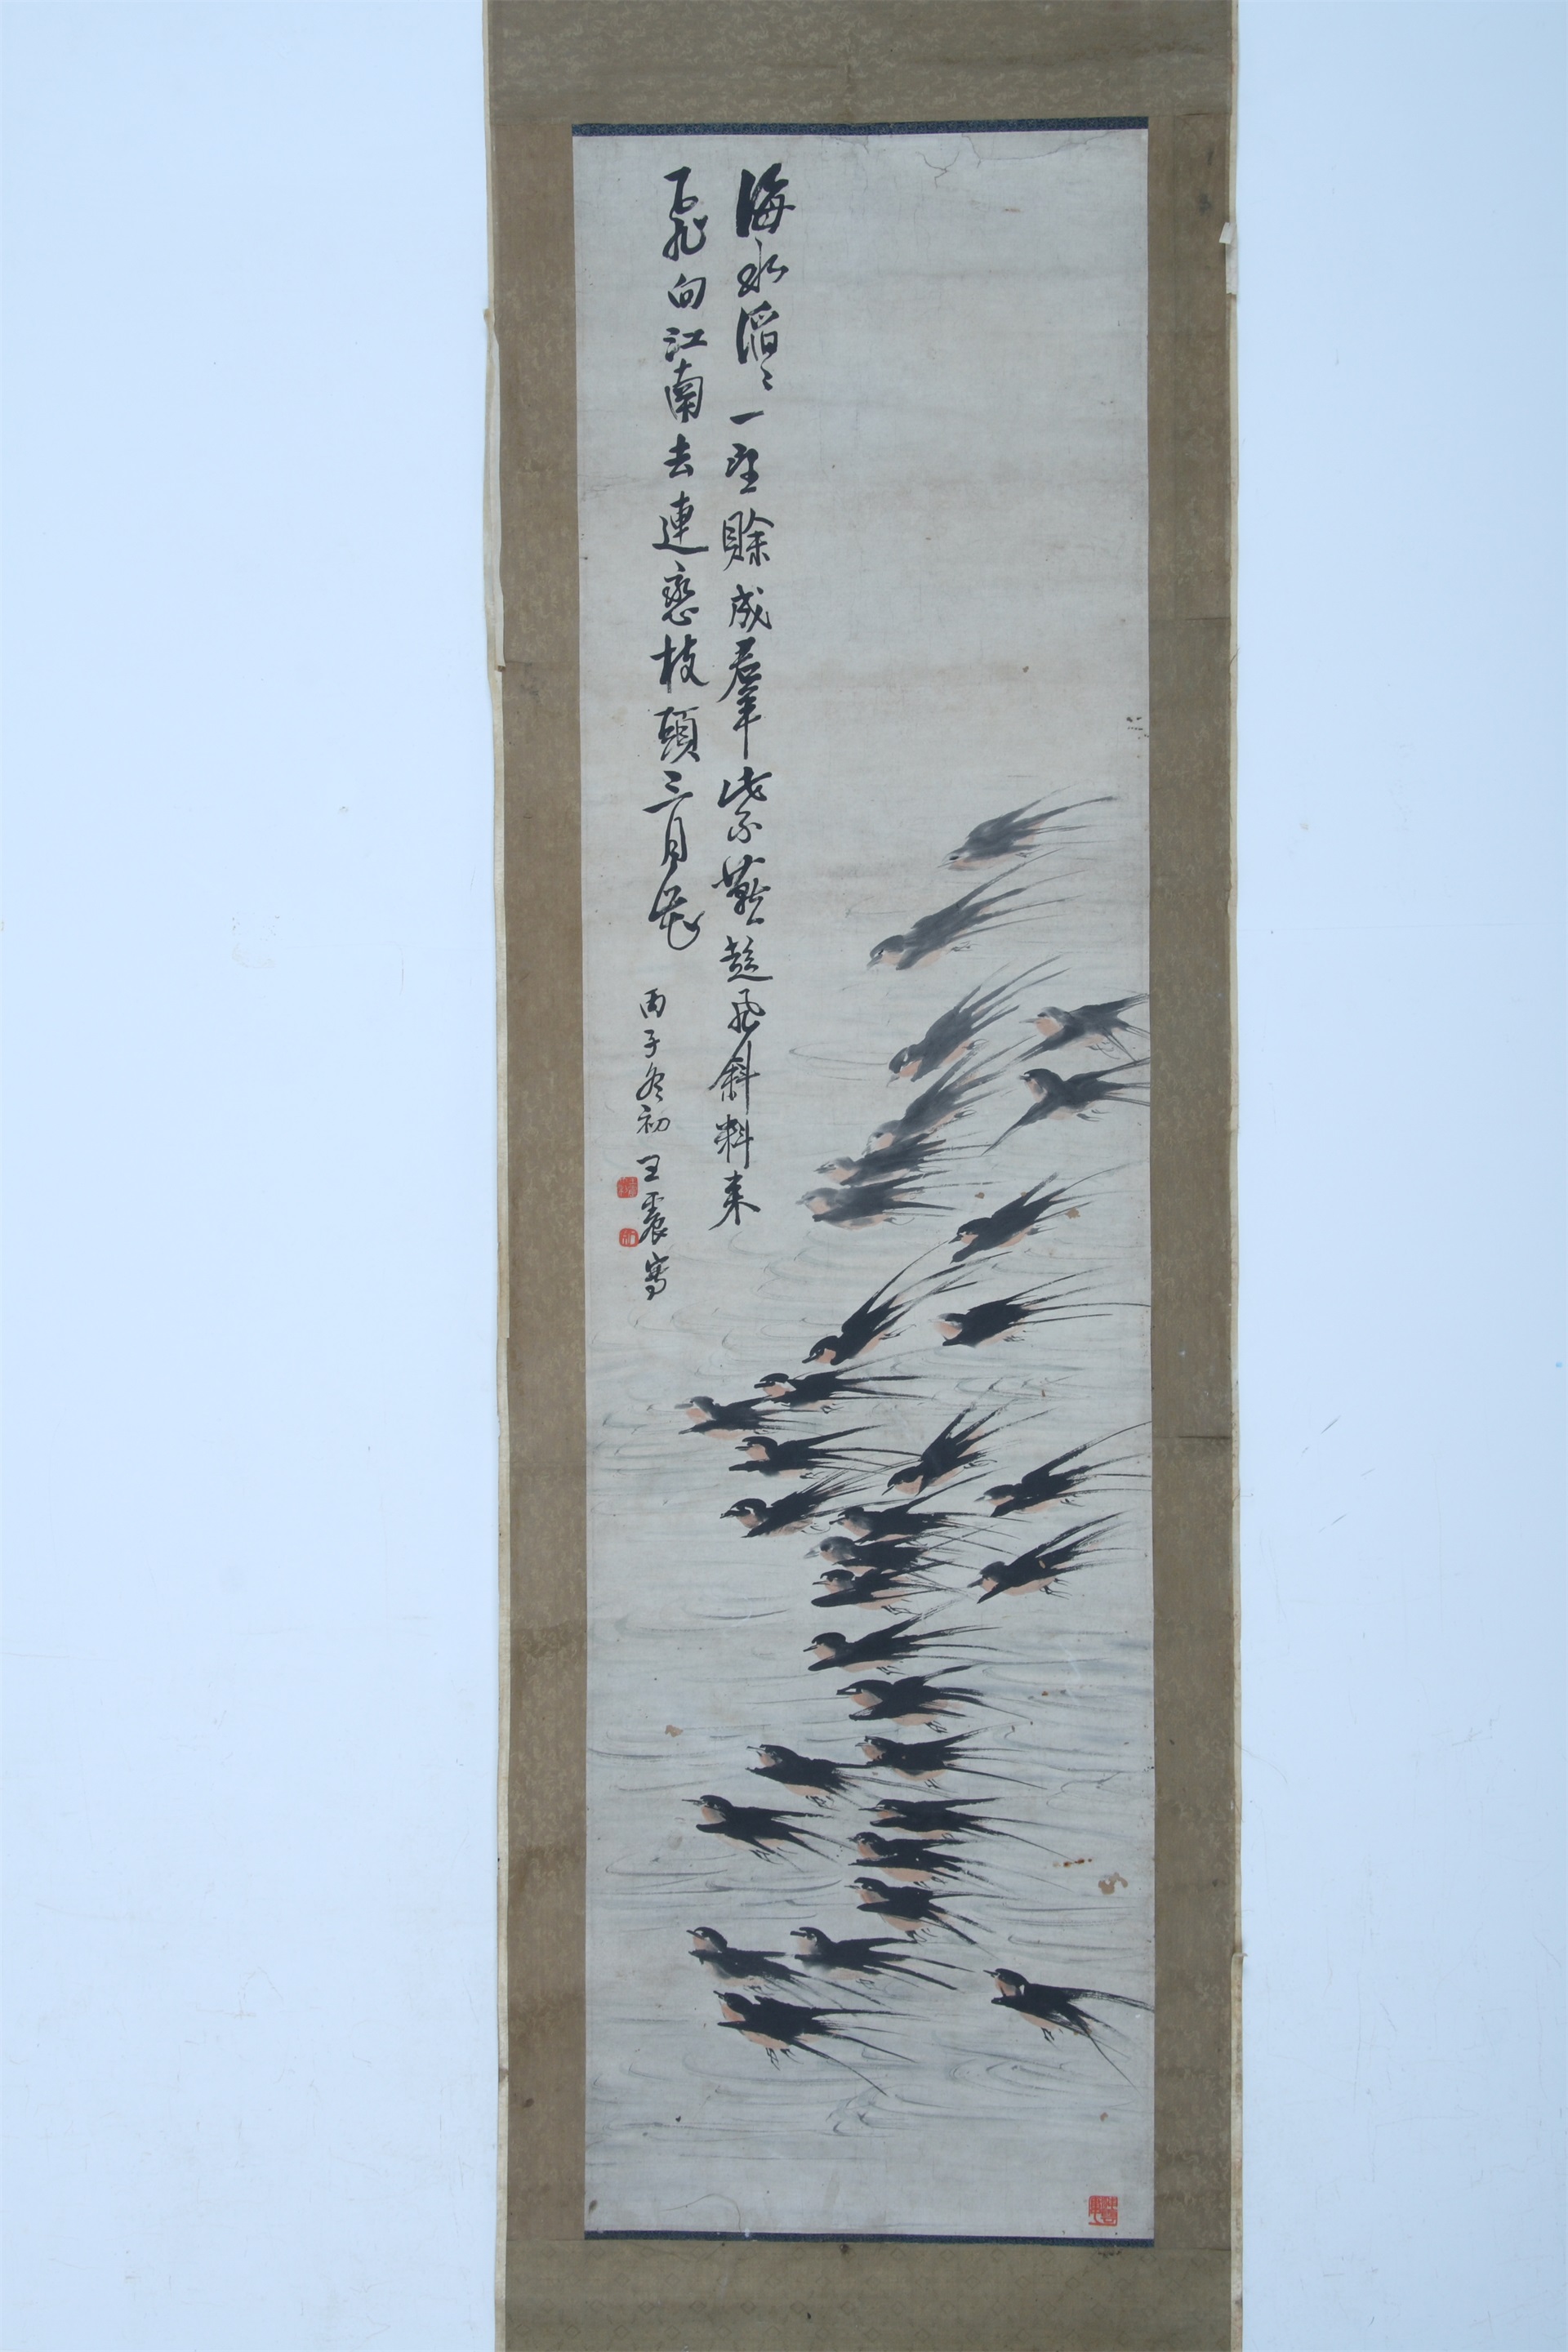 海水滔〻一望賒成羣紫燕趁風斜斜来
飛向江南去連戀枝頭三月花
丙子冬初王震寫